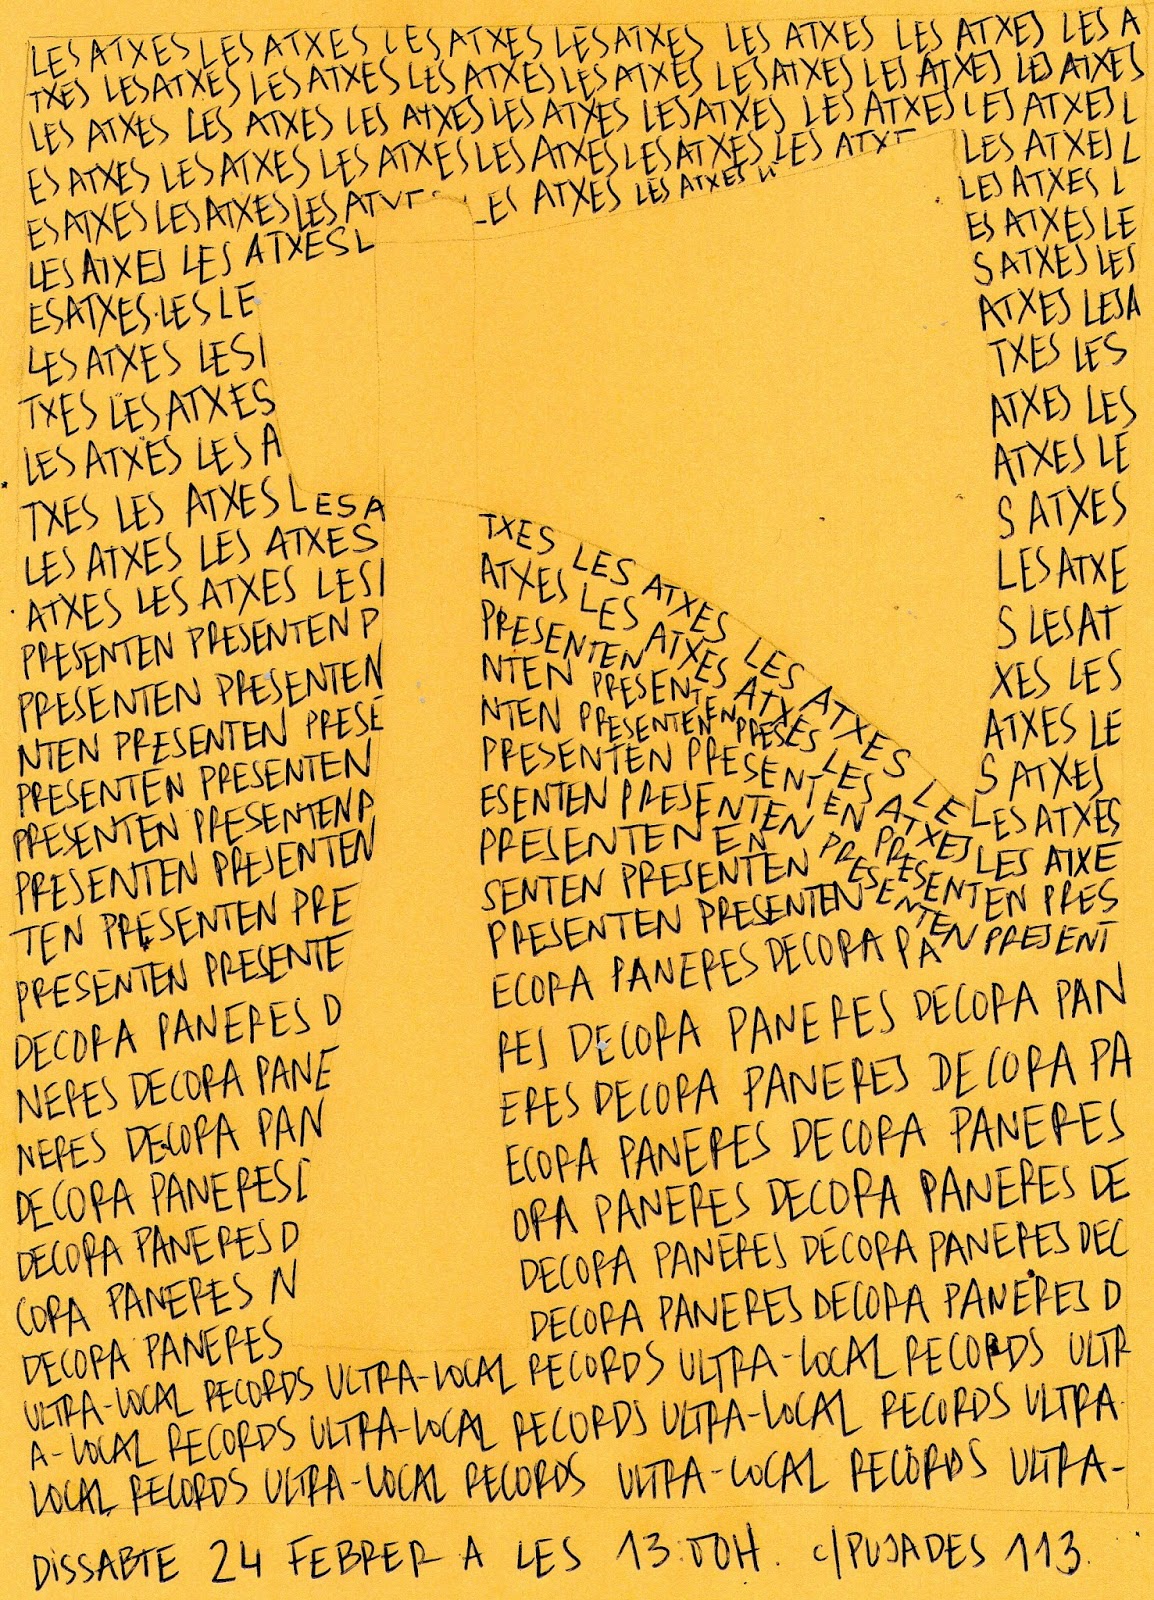 LES ATXES LES ATXES LES ATXES LES ATXES LES ATXES LES ATXES LES A
TXES LES ATXES LES ATXES LES ATXES LES ATXES LES ATXES LES ATXES LES ATXES
LES ATXES LES ATXES LES ATXES LES ATXES LES ATXES LES ATXES LES ATXES L
ES ATXES LES ATXES LES ATXES LES ATXES LES ATXES LES ATXE LES ATXES L
ES ATXES LES ATXES LES ATXE LES ATXES LES ATXES LES ATXES L
LES ATXES LES ATXES L ES ATXES LE
ESATXES·LES LE S ATXES LES
LES ATXES LES ATXES LES A
TXES LES ATXES TXES LES
LES ATXES LES A ATXES LES
TXES LES ATXES LES A ATXES LE
LES ATXES LES ATXES TXES LES ATXES LES ATXES LES ATXES LE S ATXES
ATXES LES ATXES LES ATXES LES ATXES ATXES LES ATXES LES ATXE
PRESENTEN PRESENTEN P PRESENTEN S LES AT
PRESENTEN PRESENTEN NTEN PRESENTEN XES LES
NTEN PRESENTEN PRESE NTEN PRESENTEN PRESE ATXES LE
PRESENTEN PRESENTEN PRESENTEN PRESENTEN S ATXES
PRESENTEN PRESENTEN P ESENTEN PRESENTEN PRESENTEN LES ATXES
PRESENTEN PRESENTEN PRESENTEN EN PRESENTEN LES ATXE
TEN PRESENTEN PRE SENTEN PRESENTEN PRES
PRESENTEN PRESENTE PRESENTEN PRESENTEN PRESENT
DECORA PANERES D ECORA PANERES DECORA PA
NERES DECORA PANE RES DECORA PANERES DECORA PAN
NERES DECORA PAN ERES DECORA PANERES DECORA PA
DECORA PANERES D ECORA PANERES DECORA PANERES
DECORA PANERES D ORA PANERES DECORA PANERES DE
CORA PANERES N DECORA PANERES DECORA PANERES DEC
DECORA PANERES DECORA PANERES DECORA PANERES D
ULTRA-LOCAL RECORDS ULTRA-LOCAL RECORDS ULTRA-LOCAL RECORDS ULTR
A-LOCAL RECORDS ULTRA-LOCAL RECORDS ULTRA-LOCAL RECORDS ULTRA-
LOCAL RECORDS ULTRA-LOCAL RECORDS ULTRA-LOCAL RECORDS ULTRA-
DISSABTE 24 FEBRER A LES 13:00H. c/PUJADES 113.